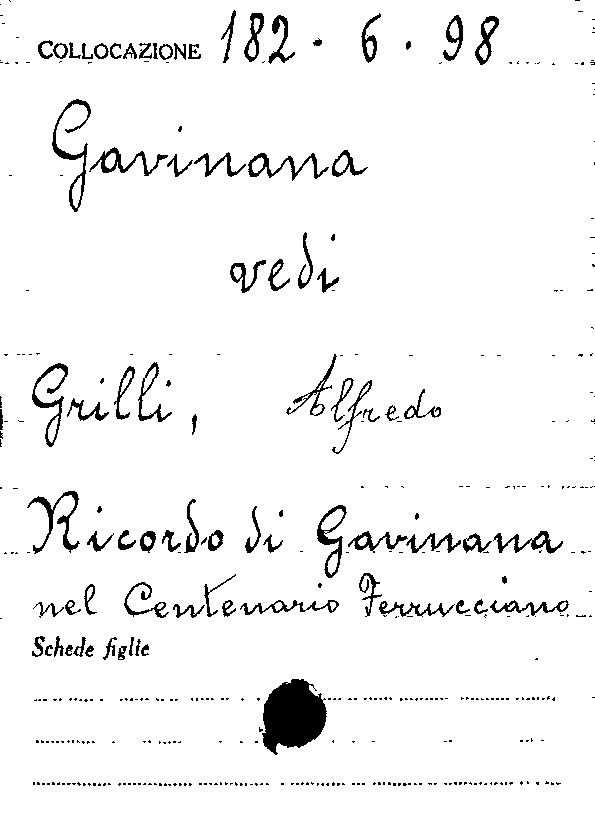 COLLOCAZIONE 182 · 6 · 98
Gavinana
vedi
Grilli, Alfredo
Ricordo di Gavinana
nel Centenario Ferrucciano
Schede figlie